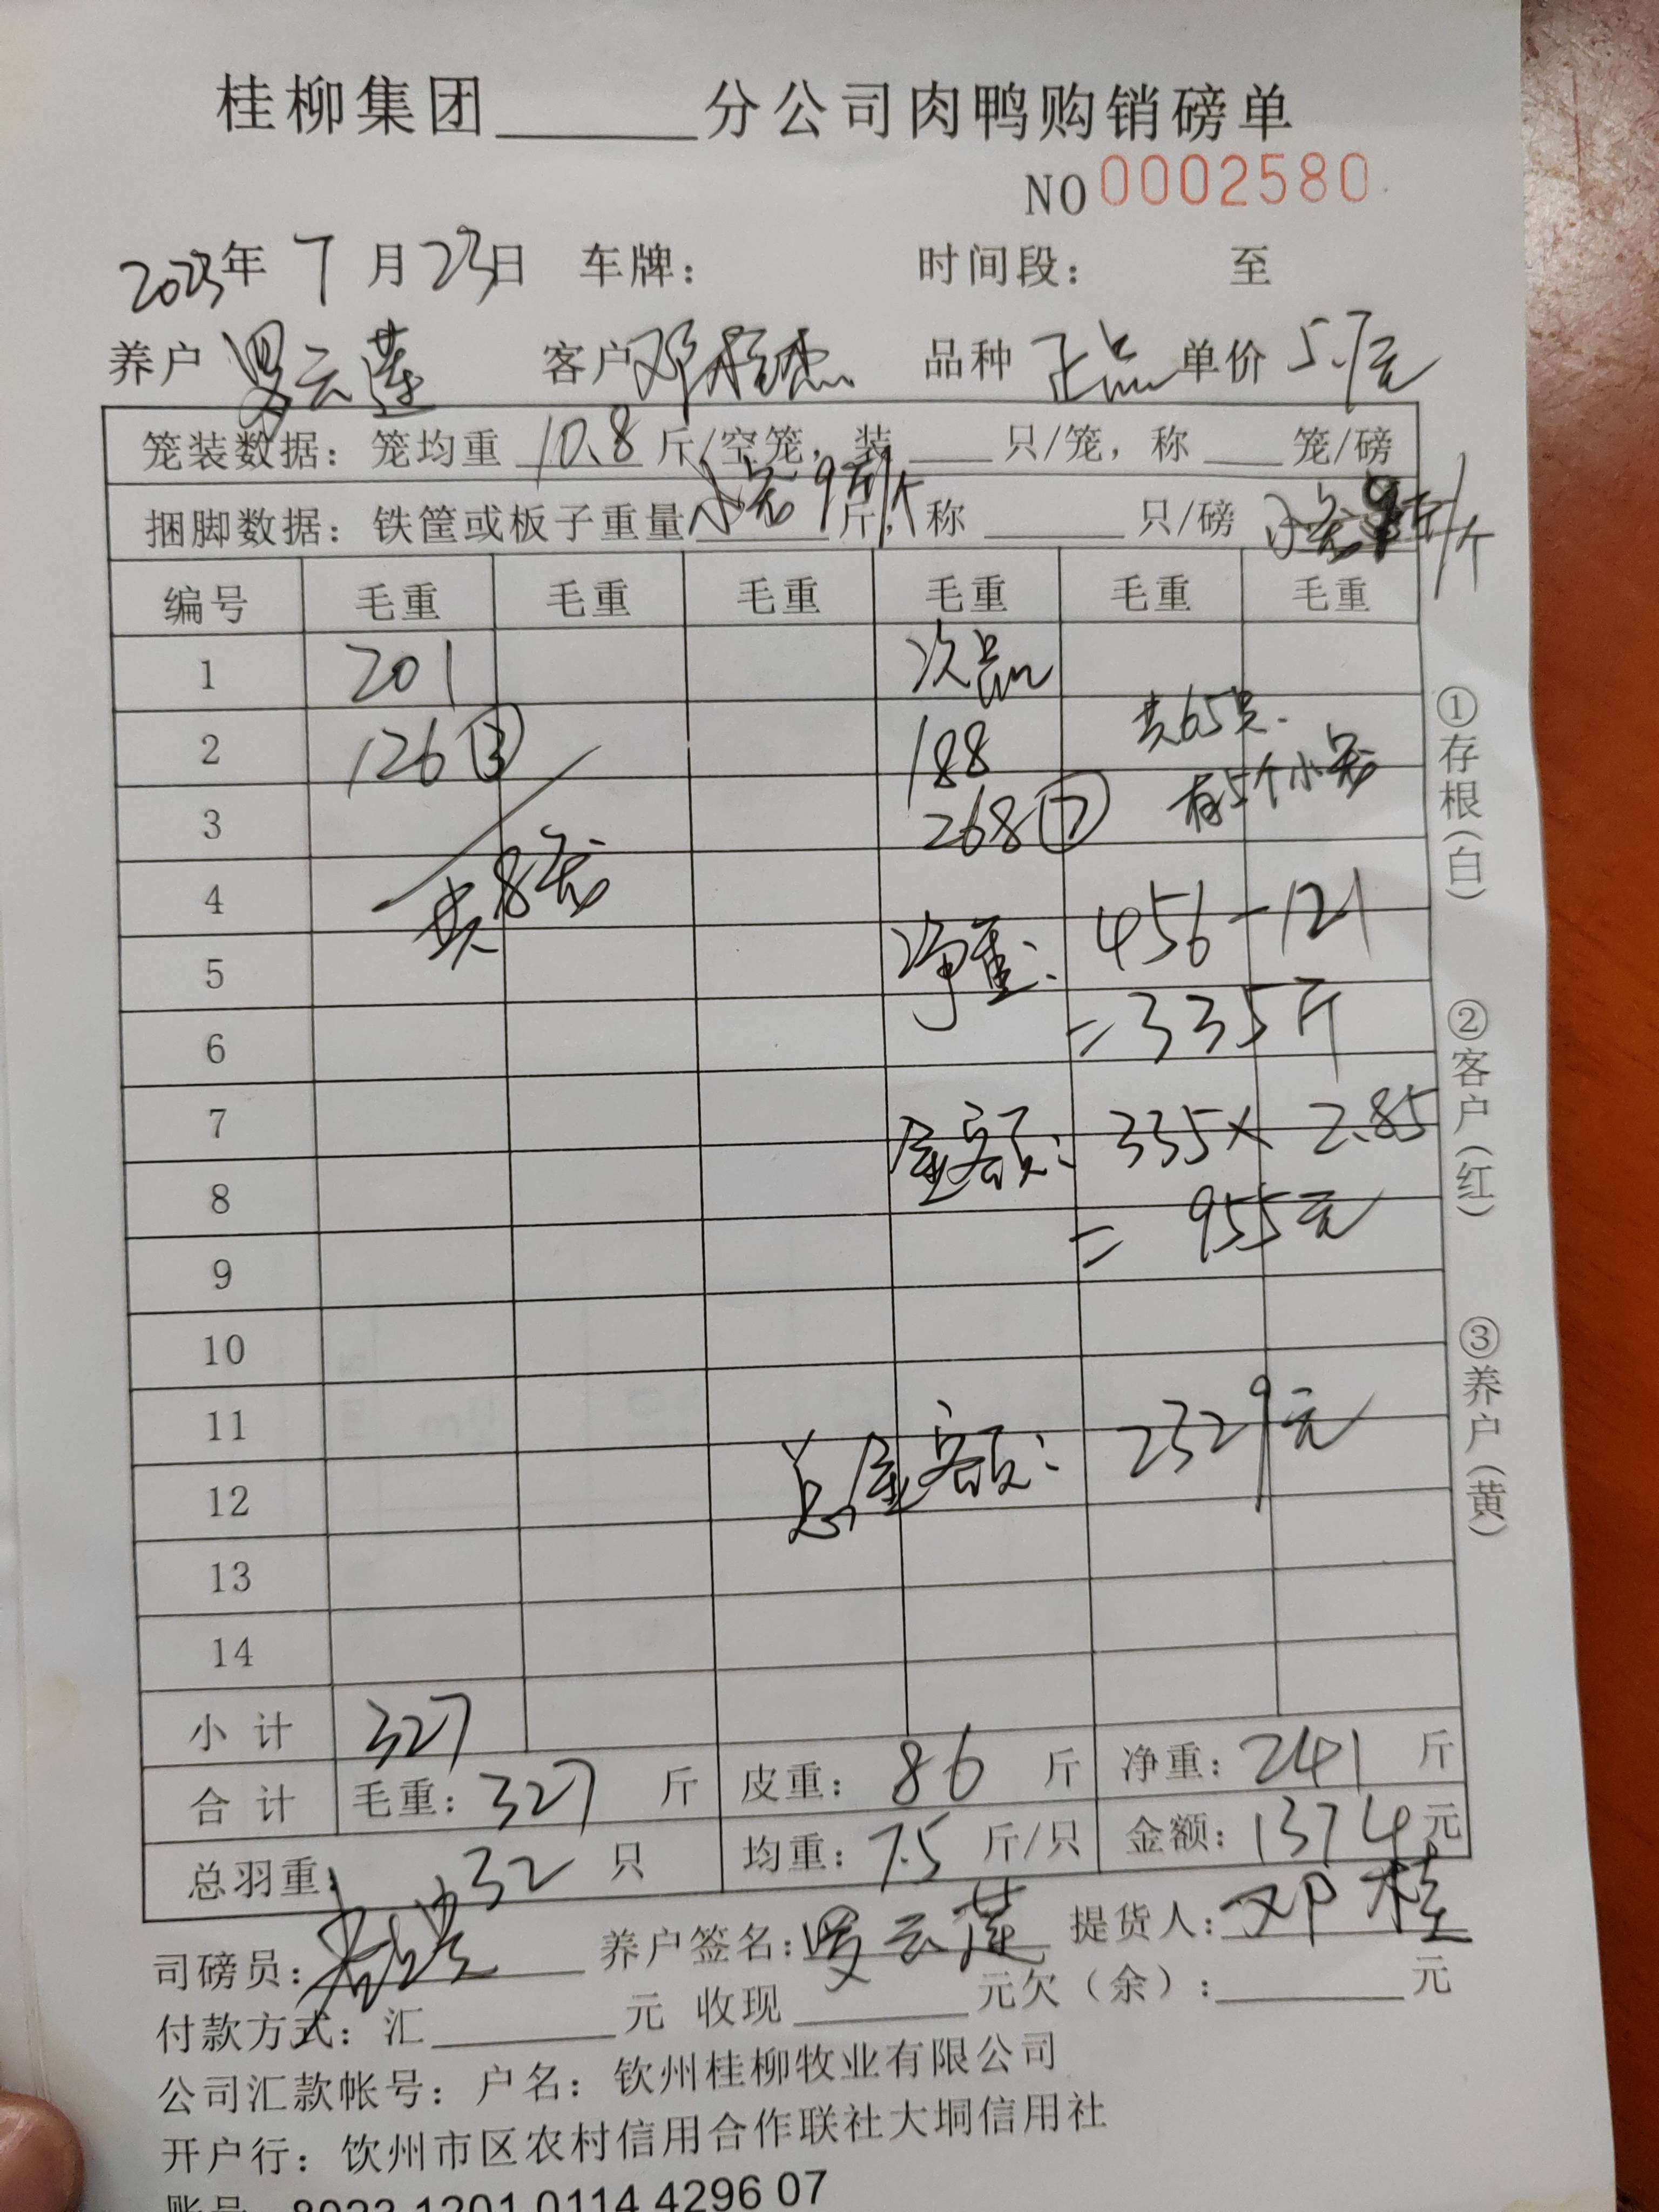 桂柳集团______分公司肉鸭购销磅单
NO 0002580
2023年 7 月 23日 车牌： 时间段： 至
养户 罗云莲 客户 邓 品种 正品 单价 5.7元
笼装数据：笼均重 10.8 斤/空笼，装____只/笼，称____笼/磅
捆脚数据：铁筐或板子重量 小笼9斤/个 斤，称______只/磅
编号 毛重 毛重 毛重 毛重 毛重 毛重
1 201 次品
2 126③ 188 共65只.
3 268⑦ 有5个小笼
4 共8笼 456-121
5 净重：
6 =335斤
7 金额：335×2.85
8 =955元
9
10
11
12 总金额：2329元
13
14
小计 327
合计 毛重：327 斤 皮重：86 斤 净重：241 斤
总羽重： 32 只 均重：7.5 斤/只 金额：1374元
司磅员： 养户签名：罗云莲 提货人：邓桂
付款方式：汇______元 收现______元欠（余）：______元
公司汇款帐号：户名：钦州桂柳牧业有限公司
开户行：钦州市区农村信用合作联社大垌信用社
账号 8023 1201 0114 4296 07
①存根（白） ②客户（红） ③养户（黄）